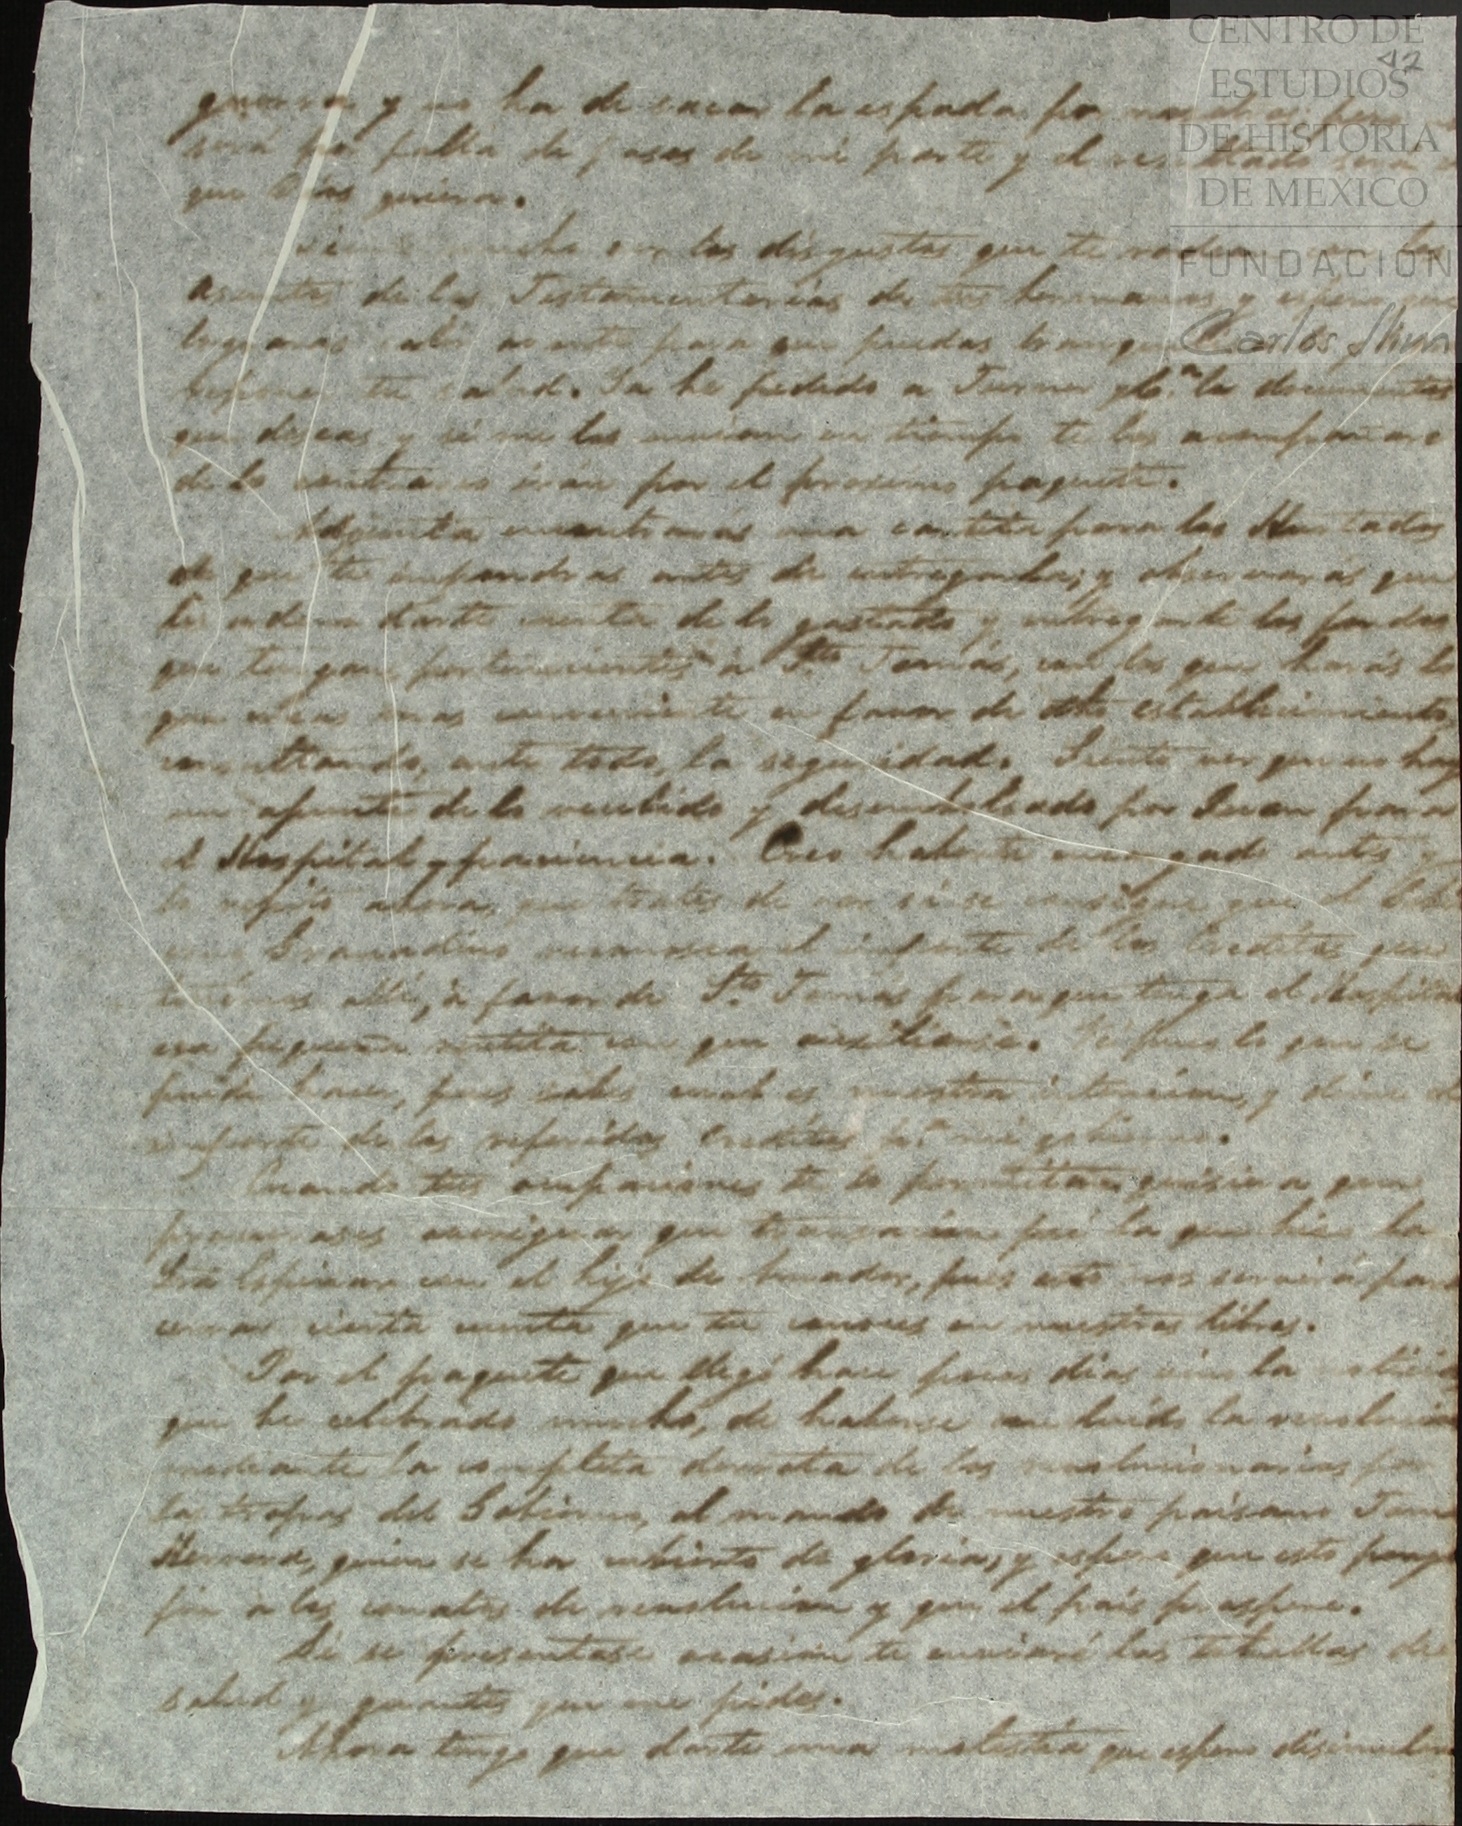 CENTRO DE
ESTUDIOS
DE HISTORIA
DE MEXICO
FUNDACIÓN
Carlos Slim
42
guerra y no ha de sacar la espada por
será por falta de de mi parte y el resultado será
que Dios quiera.
mucho los disgustos que te rodean con los
asuntos de las Testamentarias de tus hermanos, y espero que
para que puedas
tu salud. Ya he pedido a Turner y Ca. los documentos
que deseas y si me los envian en tiempo te los acompañare
de lo contrario irán por el proximo paquete.
Adjunta encontrarás una cartita para los Hurtados
de que te impondras antes de entregarla, y observarás que
darte cuenta de lo gastado y entregarte los fondos
que tengan pertenecientes a Sto. Tomás, con los que harás lo
que veas mas conveniente en favor de este establecimiento,
consultando, ante todo, la seguridad. Siento ver que no hay
un apunte de lo recibido y desembolsado por Juan para
el Hospital y paciencia. Creo haberte encargado antes y
lo repito ahora, que trates de ver si se consigue que el
Granadino reconozca el importe de los Creditos que
tenemos allí, á favor de Sto. Tomás para que tenga el Hospital
esa pequeña rentita con que auxiliarse. Ve pues lo que se
pueda hacer, pues sabes cual es nuestra intencion, y dime el
importe de los referidos Creditos pa. mi gobierno.
Cuando tus ocupaciones te lo permitan quisiera que
procurases averiguar que transacion fué la que hizo la
Sra. Espinar con el hijo de pues esto nos servirá para
cerrar cierta cuenta que tu conoces en nuestros libros.
Por el paquete que llegó hace pocos dias vino la noticia
que he celebrado mucho, de haberse concluido la revolucion
mediante la completa derrota de los revolucionarios por
las tropas del Gobierno, al mando de nuestro paisano Tomas
Herrera, quien se ha cubierto de gloria, y espero que esto ponga
fin á los conatos de revolucion y que el país prospere.
Si se presentase ocasion te enviaré las botellas de
salud y que me pides.
Ahora tengo que darte una molestia que espero disimules